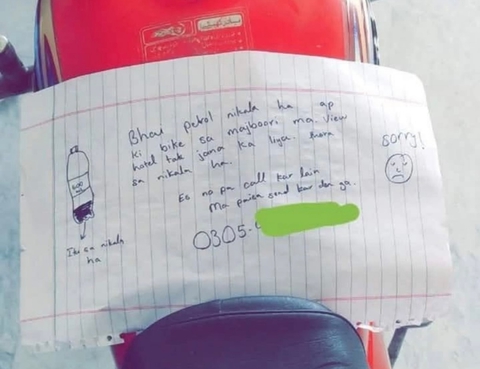 Bhai petrol nikala ha ap
ki bike sa majboori ma. View
hotel tak jana ka liya. thora
sa nikala ha.
Es no pa call kar lain
Ma paisa send kar don ga.
0305-
sorry!
Iti sa nikala
ha